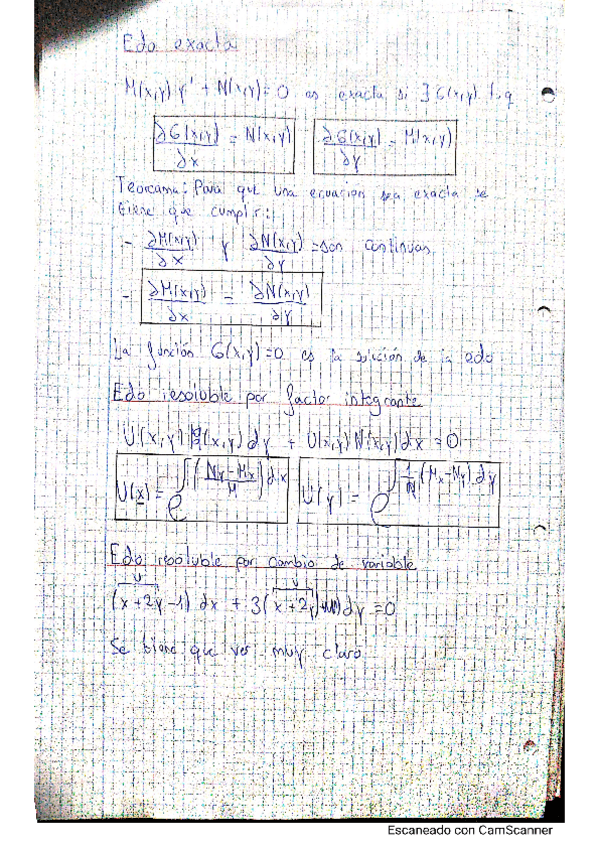 Edo exacta
M(x,y) y' + N(x,y) = 0 es exacta si ∃ G(x,y) t.q
∂G(x,y)/∂x = N(x,y)   ∂G(x,y)/∂y = M(x,y)
Teorema: Para que una ecuacion sea exacta se
tiene que cumplir:
- ∂M(x,y)/∂x y ∂N(x,y)/∂y = son continuas
- ∂M(x,y)/∂x = ∂N(x,y)/∂y
La función G(x,y)=0 es la solución de la edo
Edo resoluble por factor integrante
U(x,y) (x,y) dy + U(x,y) N(x,y) dx = 0
U(x) = e^∫((Ny-Mx)/M)dx   U(y) = e^∫1/N (Mx-Ny) dy
Edo resoluble por cambio de variable
(x+2y-1) dx + 3(x+2y) dy = 0
Se tiene que ver muy claro
Escaneado con CamScanner